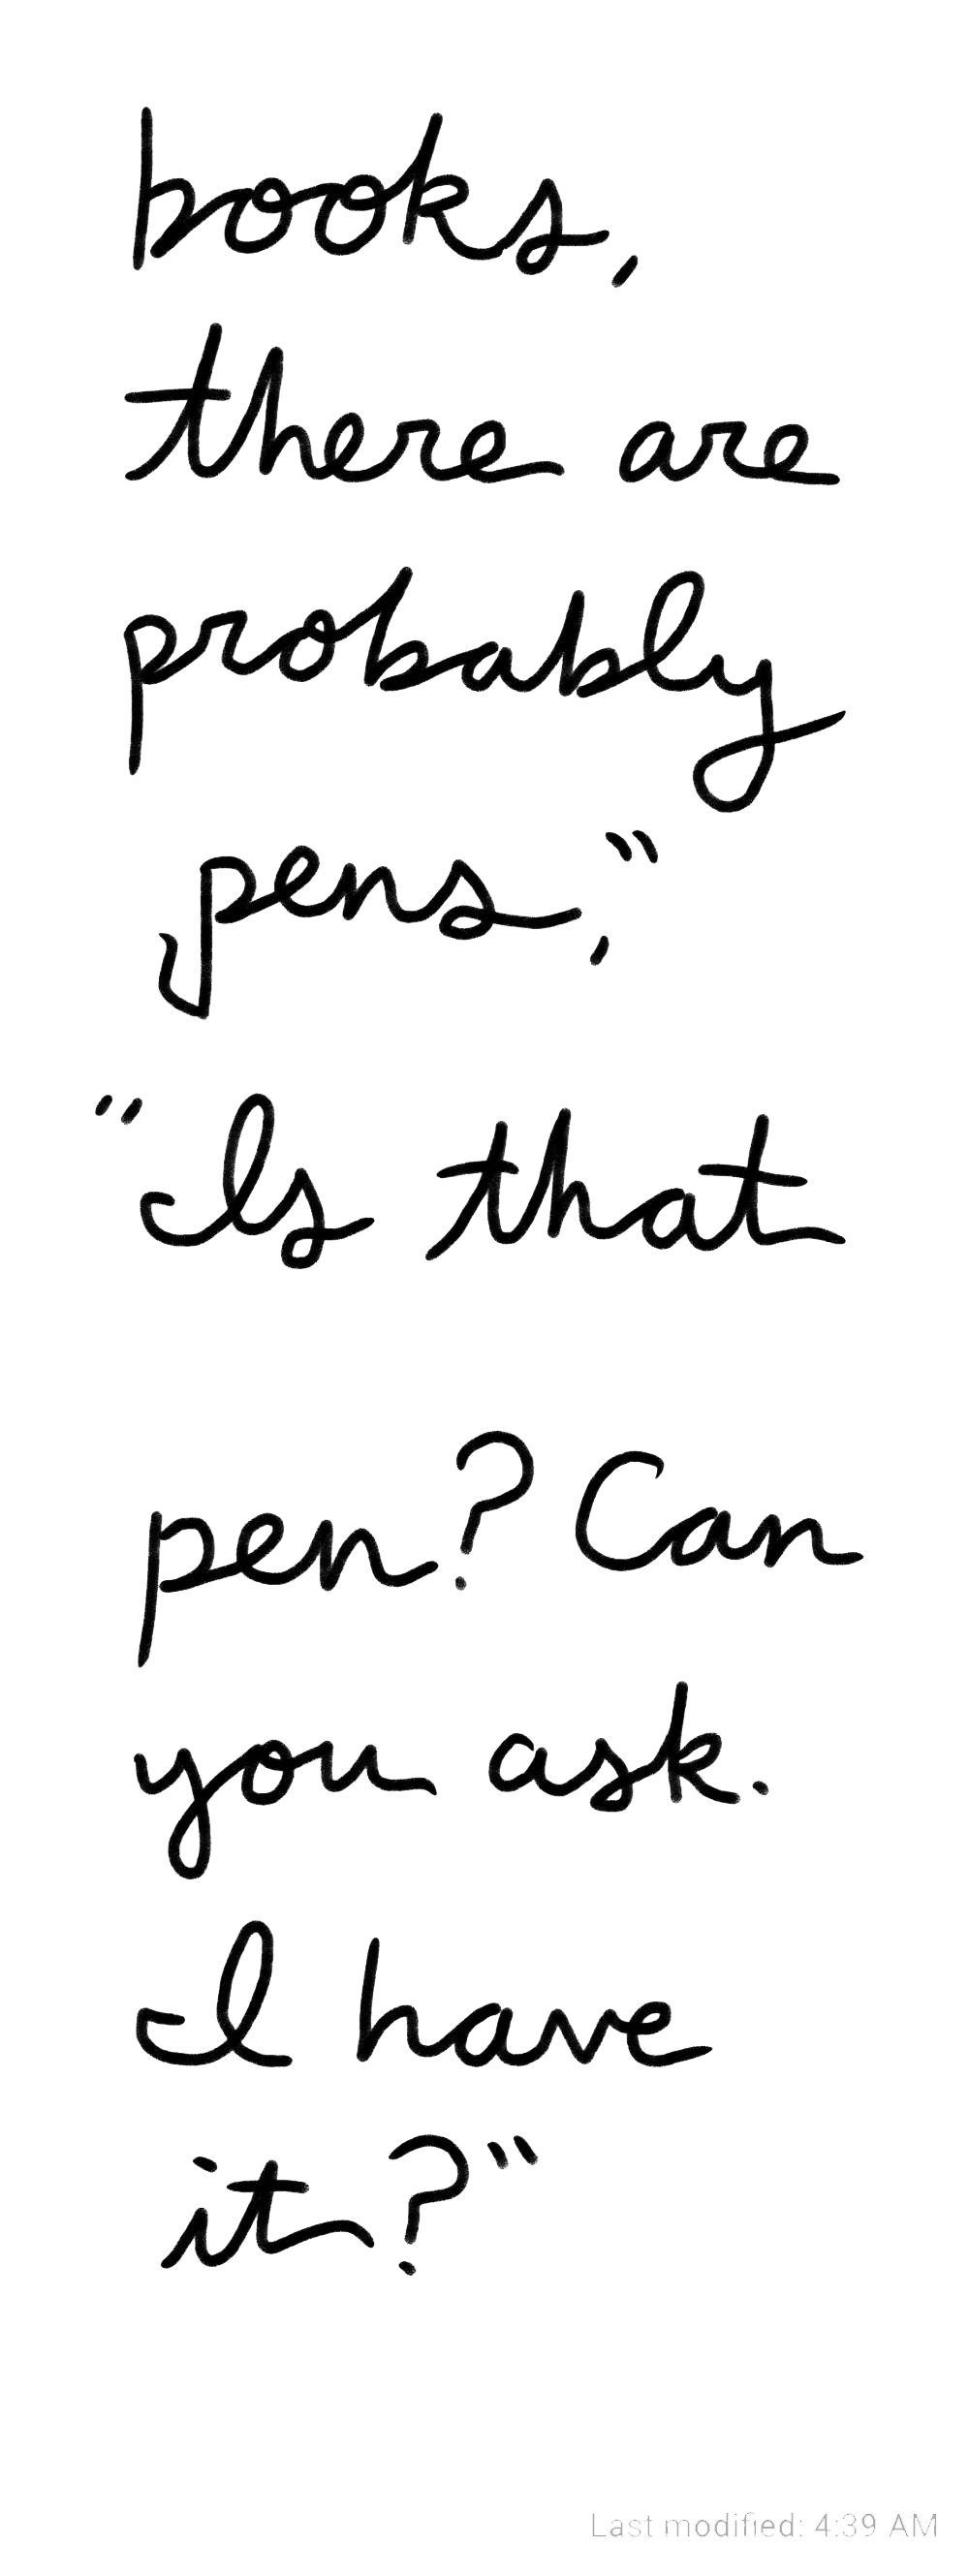 books,
there are
probably
pens,"
"Is that
pen? Can
you ask.
I have
it?"
Last modified: 4:39 AM